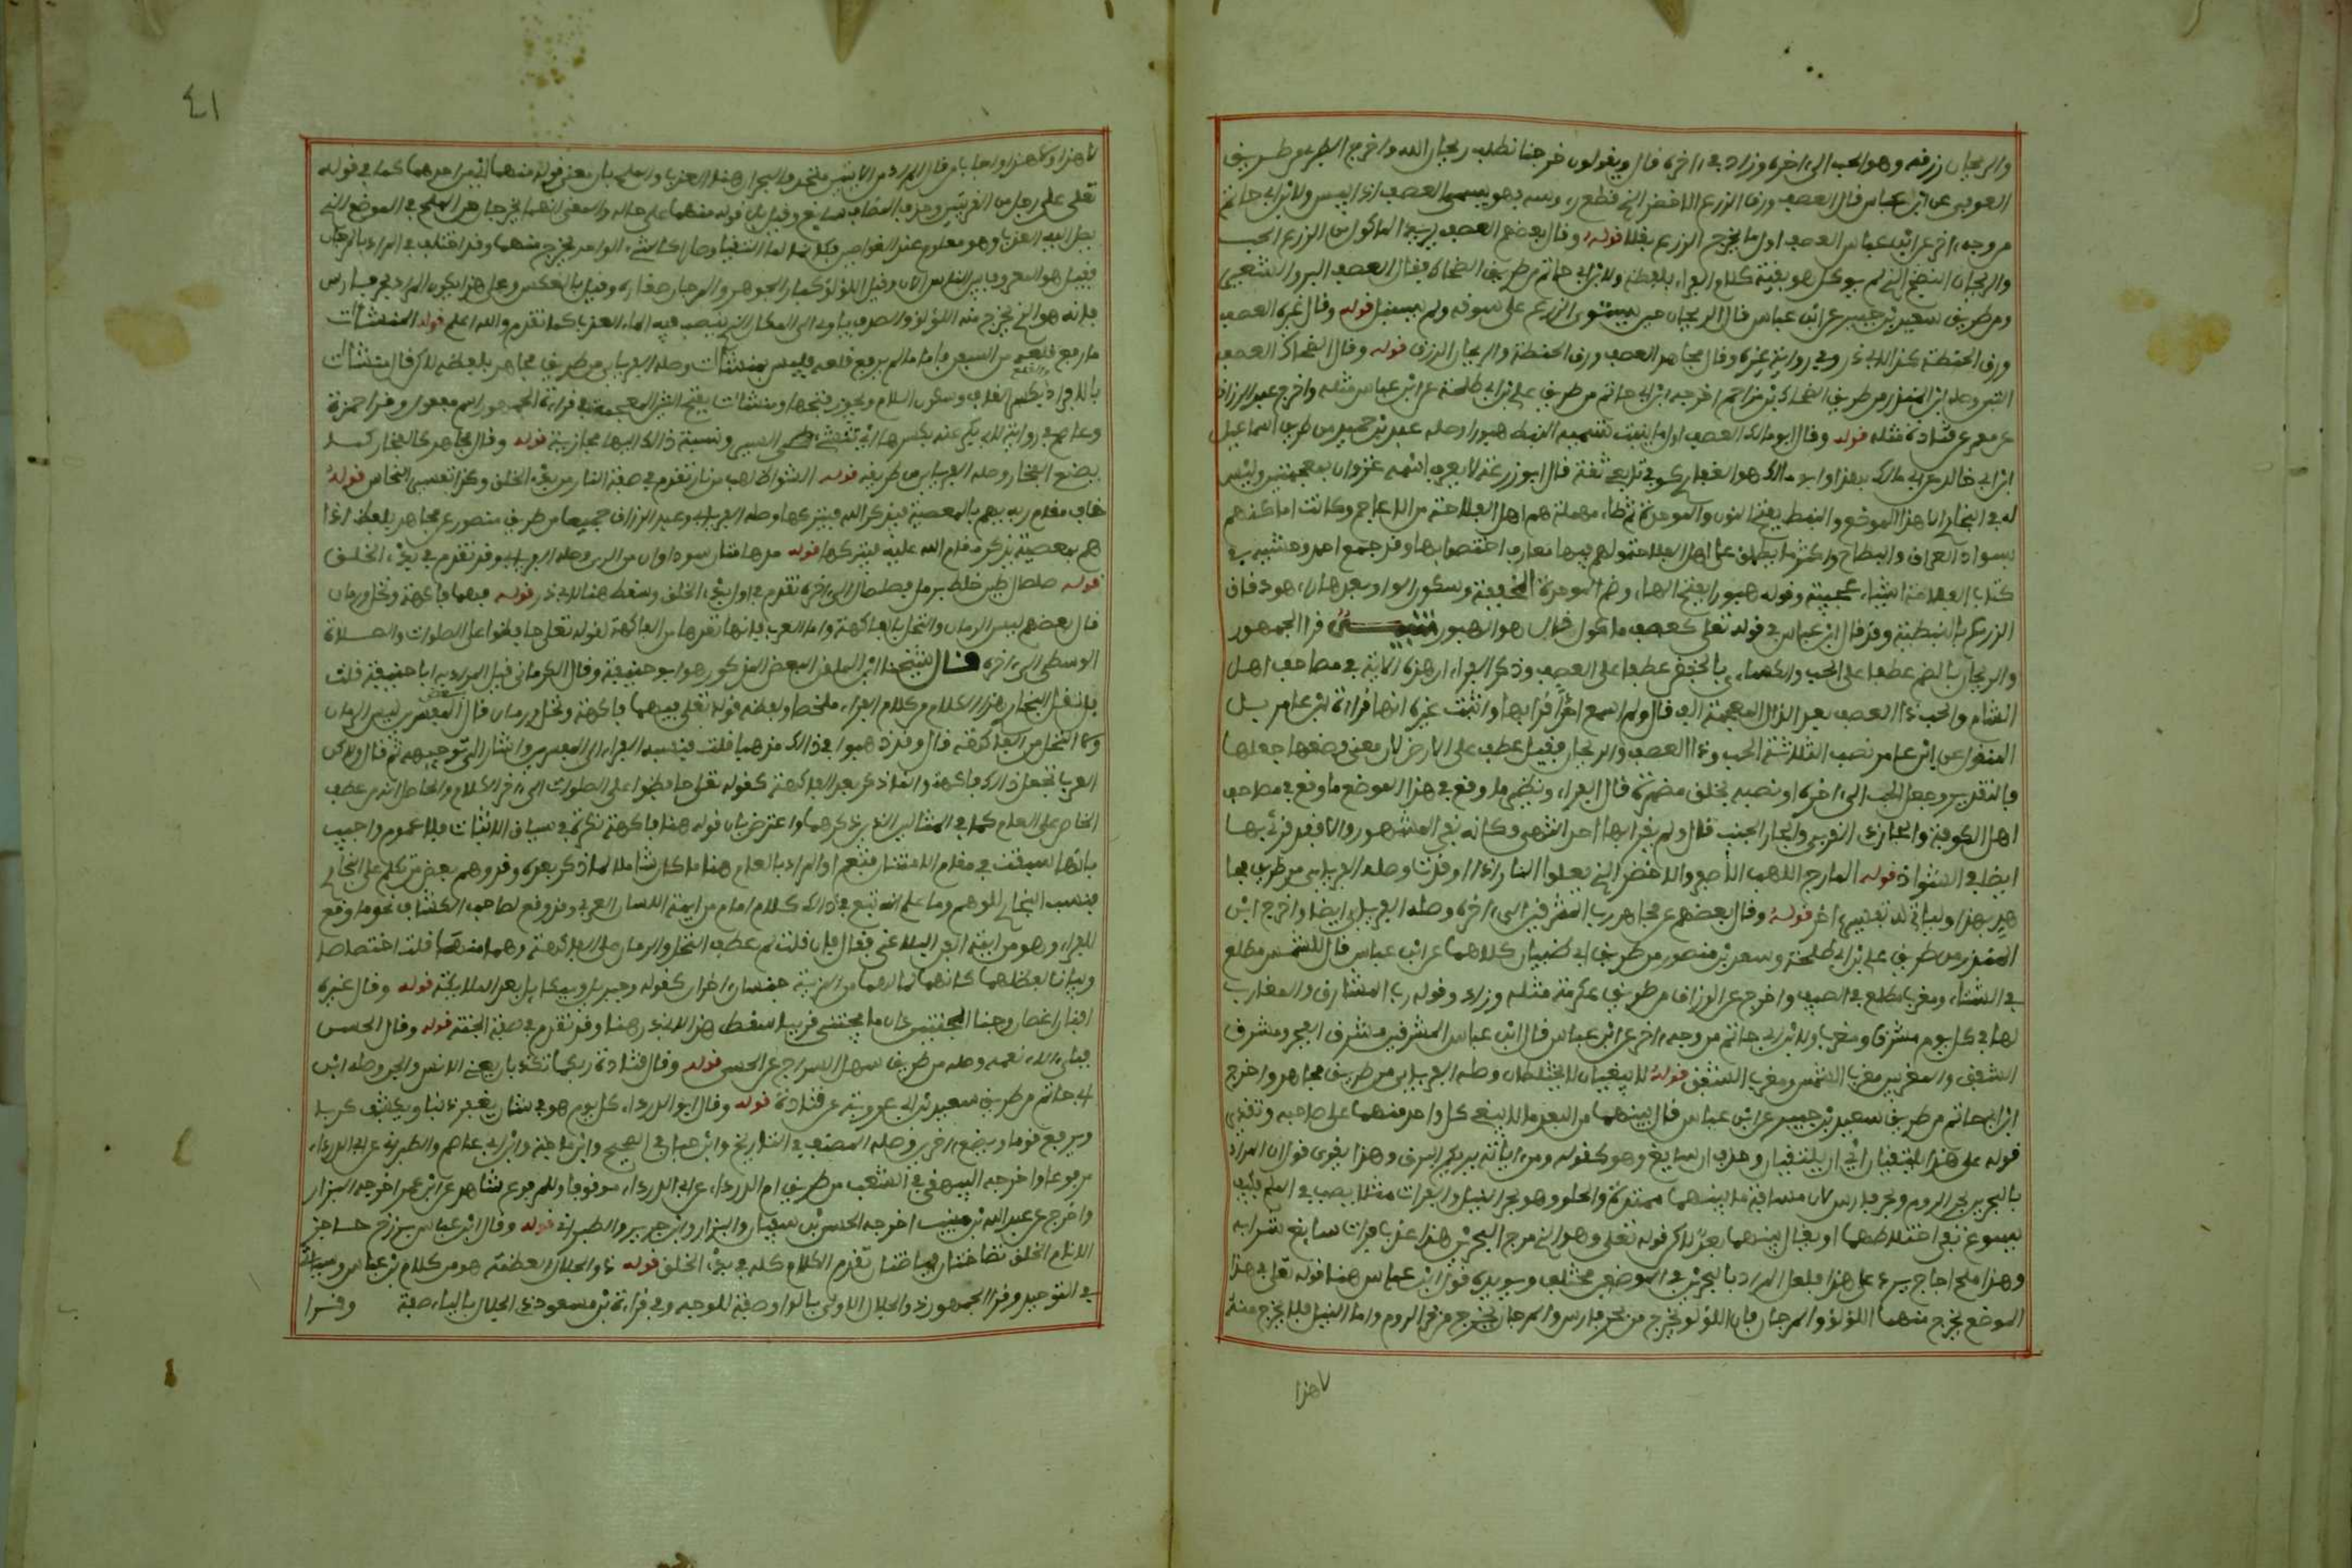 والريحان رزقه وهو الحب الى اخره وزاد في اخره قال ويقولون خرجنا نطلب ريحان الله واخرج الطبري من طريق
العوفي عن ابن عباس قال العصف ورق الزرع الاخضر الذي قطع رءوسه فهو يسمى العصف اذا يبس ولابن ابي حاتم
من وجه اخر عن ابن عباس العصف اول ما يخرج الزرع بقلا قوله وقال بعضهم العصف يريد الماكول من الزرع الحب
والريحان النضيج الذي لم يوكل هو بقية كلام الفراء بلفظه ولابن ابي حاتم من طريق الضحاك قال العصف البر والشعير
ومن طريق سعيد بن جبير عن ابن عباس قال الريحان حين يستوي الزرع على سوقه ولم يسنبل قوله وقال غيره العصف
ورق الحنطة كذا لابي ذر وفي رواية غيره وقال مجاهد العصف ورق الحنطة والريحان الرزق قوله وقال الضحاك العصف
التبن وصله ابن المنذر من طريق الضحاك بن مزاحم اخرجه ابن ابي حاتم من طريق علي بن ابي طلحة عن ابن عباس مثله واخرج عبد الرزاق
عن معمر عن قتادة مثله قوله وقال ابو مالك العصف اول ما ينبت تسميه النبط هبورا وصله عبد بن حميد من طريق اسماعيل
ابن ابي خالد عن ابي مالك بهذا وابو مالك هو الغفاري كوفي تابعي ثقة قال ابو زرعة لا يعرف اسمه غزوان بمعجمتين وليس
له في البخاري الا هذا الموضع والنبط بفتح النون والموحدة ثم طاء مهملة هم اهل الفلاحة من الاعاجم وكانت اماكنهم
بسواد العراق والبطائح واكثر ما يطلق على اهل الفلاحة ولهم فيها معارف اختصوا بها وقد جمع احمد بن وحشية في
كتاب الفلاحة اشياء عجيبة وقوله هبورا بفتح الهاء وضم الموحدة الخفيفة وسكون الواو وبعدها راء هو دقاق
الزرع بالنبطية وقد قال ابن عباس في قوله تعلى كعصف ماكول قال هو الهبور قرا الجمهور
والريحان بالضم عطفا على الحب والكسائي بالخفض عطفا على العصف وذكر الفراء ان هذه الآية في مصاحف اهل
الشام والحب ذا العصف بعد الذال المعجمة الف قال ولم اسمع احدا قرا بها واثبت غيره انها قراءة ابن عامر بل
المنقول عن ابن عامر نصب الثلاثة الحب وذا العصف والريحان فقيل عطف على الارض لان معنى وضعها جعلها
فالتقدير وجعل الحب الى اخره او نصبه بخلق مضمرة قال الفراء ونظير ما وقع في هذا الموضع ما وقع في مصاحف
اهل الكوفة والجار ذي القربى والجار الجنب قال ولم يقرا بها احد انتهى وكانه نفى المشهور والا فقد قرئ بها
ايضا في الشواذ قوله المارج اللهب الاصفر والاخضر الذي يعلو النار اذا اوقدت وصله الفريابي من طريق مجا
هد بهذا وسياتي له تفسير اخر قوله وقال بعضهم عن مجاهد رب المشرقين الى اخره وصله الفريابي ايضا واخرج ابن
المنذر من طريق علي بن ابي طلحة وسعيد بن منصور من طريق ابي ظبيان كلاهما عن ابن عباس قال للشمس مطلع
في الشتاء ومغرب ومطلع في الصيف واخرج عبد الرزاق من طريق عكرمة مثله وزاد وقوله رب المشارق والمغارب
لها في كل يوم مشرق ومغرب ولابن ابي حاتم من وجه اخر عن ابن عباس قال المشرقين مشرق الفجر ومشرق
الشفق والمغربين مغرب الشمس ومغرب الشفق قوله لا يبغيان لا يختلطان وصله الفريابي من طريق مجاهد واخرج
ابن ابي حاتم من طريق سعيد بن جبير عن ابن عباس قال بينهما من البعد ما لا يبغي كل واحد منهما على صاحبه وتقدير
قوله على هذا يلتقيان اي ان يلتقيان وحذف ان سايغ وهو كقوله ومن اياته يريكم البرق وهذا يقوي قول ان المراد
بالبحرين بحر الروم وبحر فارس لان مسافة ما بينهما ممتدة والحلو وهو بحر النيل والفرات مثلا يصب في الملح فكيف
يسوغ نفي اختلاطهما او يقال بينهما بعد لاكن قوله تعلى وهو الذي مرج البحرين هذا عذب فرات سايغ شرابه
وهذا ملح اجاج يرد على هذا فلعل المراد بالبحرين في الموضعين مختلف ويويده قول ابن عباس هنا قوله تعلى في هذا
الموضع يخرج منهما اللؤلؤ والمرجان فان اللؤلؤ يخرج من بحر فارس والمرجان يخرج من بحر الروم واما النيل فلا يخرج منه
لا هذا
٤١
لا هذا ولا هذا واجاب من قال المراد من الايتين متحد والبحران هنا العذب والملح بان معنى قوله منهما اي من احدهما كما في قوله
تعلى على رجل من القريتين وحذف المضاف سايغ وقيل بل قوله منهما على حاله والمعنى انهما يخرجان من الملح في الموضع الذي
يصل اليه العذب وهو معلوم عند الغواصين فكانهما لما التقيا وصارا كالشيء الواحد يخرج منهما وقد اختلف في المراد بالمرجان
فقيل هو المعروف بين الناس الان وقيل اللؤلؤ كبار الجوهر والمرجان صغاره وقيل بالعكس وعلى هذا يكون المراد بحر فارس
فانه هو الذي يخرج منه اللؤلؤ والصدف ياوي الى المكان الذي ينصب فيه الماء العذب كما تقدم والله اعلم قوله المنشئات
ما رفع قلعه من السفن فاما ما لم يرفع قلعه فليس بمنشئات وصله الفريابي من طريق مجاهد بلفظه لاكن قال منشئات
والقلع بكسر القاف وسكون اللام ويجوز فتحها ومنشئات بفتح الشين المعجمة في قراءة الجمهور اسم مفعول وقرا حمزة
وعاصم في رواية لابي بكر عنه بكسرها اي المنشئة هي السير ونسبة ذلك اليها مجازية قوله وقال مجاهد كالفخار كما
يصنع الفخار وصله الفريابي من طريقه قوله الشواظ لهب من نار تقدم في صفة النار من بدء الخلق وكذا تفسير النحاس قوله
خاف مقام ربه يهم بالمعصية فيذكر الله فيتركها وصله الفريابي وعبد الرزاق جميعا من طريق منصور عن مجاهد بلفظ اذا
هم بمعصية يذكر مقام الله عليه فيتركها قوله مدهامتان سوداوان من الري وصله الفريابي وقد تقدم في بدء الخلق
قوله صلصال طين خلط برمل فصلصل الى اخره تقدم في اول بدء الخلق وسقط هنا لابي ذر قوله فيهما فاكهة ونخل ورمان
قال بعضهم ليس الرمان والنخل بالفاكهة واما العرب فانها تعدهما من الفاكهة لقوله تعلى حافظوا على الصلوات والصلاة
الوسطى الى اخره قال شيخنا ابن الملقن البعض المذكور هو ابو حنيفة وقال الكرماني قيل المراد به ابا حنيفة قلت
بل نقل البخاري هذا الكلام من كلام الفراء ملخصا ولفظه قوله تعلى فيهما فاكهة ونخل ورمان قال بعض المفسرين ليس الرمان
ولا النخل من الفاكهة قال وقد ذهبوا في ذلك مذهبا قلت فنسبه الفراء الى المفسرين واشار الى توجيهه ثم قال ولاكن
العرب تجعل ذلك فاكهة وانما ذكرا بعد الفاكهة كقوله تعلى حافظوا على الصلوات الى اخر الكلام والحاصل انه من عطف
الخاص على العام كما في المثالين الذين ذكرهما واعترض بان قوله هنا فاكهة نكرة في سياق الاثبات فلا عموم واجيب
بانها سيقت في مقام الامتنان فتعم او المراد بالعام هنا ما كان شاملا لما ذكر بعده وقد وهم بعض من تكلم على البخاري
فنسب البخاري للوهم وما علم انه تبع في ذلك كلام امام من ايمة اللسان العربي وقد وقع لصاحب الكشاف نحو ما وقع
للفراء وهو من ايمة الفن البلاغي فقال فان قلت لم عطف النخل والرمان على الفاكهة وهما منها قلت اختصاصا
وبيانا لفضلهما كانهما لما لهما من المزية جنسان اخران كقوله وجبريل وميكايل بعد الملايكة قوله وقال غيره
افنان اغصان وجنا الجنتين دان ما يجتنى قريب سقط هذا لابي ذر هنا وقد تقدم في صفة الجنة قوله وقال الحسن
فباي الاء نعمه وصله من طريق سهل السراج عن الحسن قوله وقال قتادة ربكما تكذبان يعني الانس والجن وصله ابن
ابي حاتم من طريق سعيد بن ابي عروبة عن قتادة قوله وقال ابو الدرداء كل يوم هو في شان يغفر ذنبا ويكشف كربا
ويرفع قوما ويضع اخرين وصله المصنف في التاريخ وابن حبان في الصحيح وابن ماجة وابن ابي عاصم والطبراني عن ابي الدرداء
مرفوعا واخرجه البيهقي في الشعب من طريق ام الدرداء عن ابي الدرداء موقوفا وللمرفوع شاهد عن ابن عمر اخرجه البزار
واخرج عن عبد الله بن منيب اخرجه الحسن بن سفيان والبزار وابن جرير والطبراني قوله وقال ابن عباس برزخ حاجز
الانام الخلق نضاختان فياضتان تقدم الكلام كله في بدء الخلق قوله ذو الجلال العظمة هو من كلام ابن عباس وسياتي
في التوحيد وقرا الجمهور ذو الجلال الاولى بالواو صفة للوجه وفي قراءة ابن مسعود ذي الجلال بالياء صفة وقرا